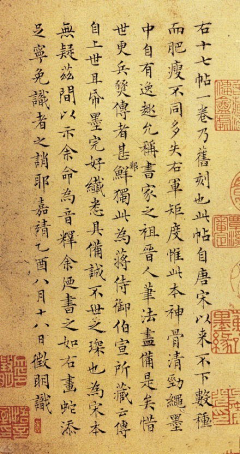 右十七帖一卷乃舊刻也此帖自唐宋以來不下數種
而肥瘦不同多失右軍矩度惟此本神骨清勁繩墨
中自有逸趣允稱書家之祖晉人筆法盡備是矣惜
世更兵燹傳者甚鮮獨此為蔣侍御伯宣所藏云傳
自上世耳帋墨完好纖悉具備誠不世之琛也為宋本
無疑茲間以示余命為音釋余書之如右畫蛇添
足寧免識者之誚耶嘉靖乙酉八月十八日徵明識